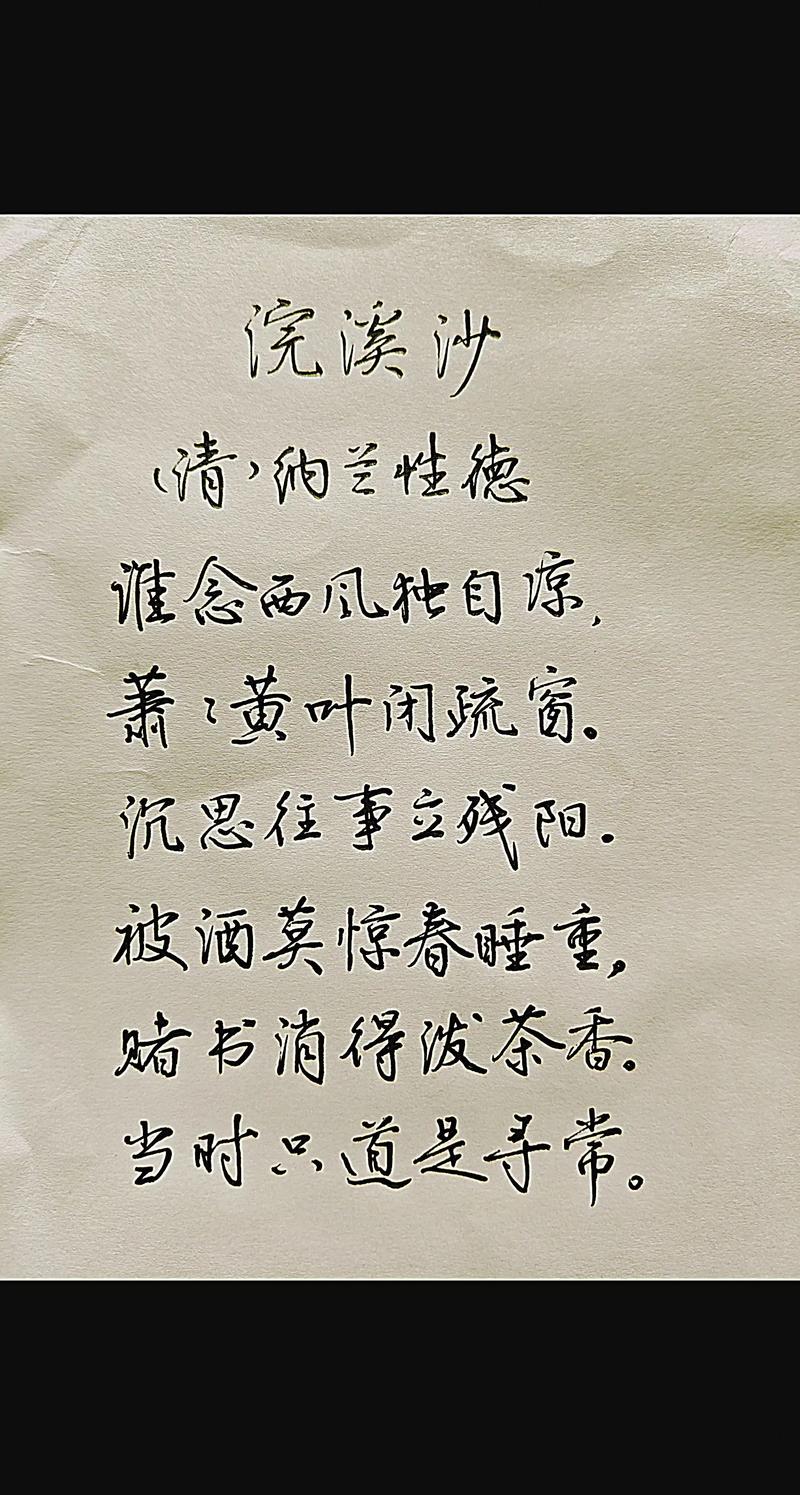 浣溪沙
(清)纳兰性德
谁念西风独自凉,
萧々黄叶闭疏窗。
沉思往事立残阳.
被酒莫惊春睡重,
赌书消得泼茶香。
当时只道是寻常。